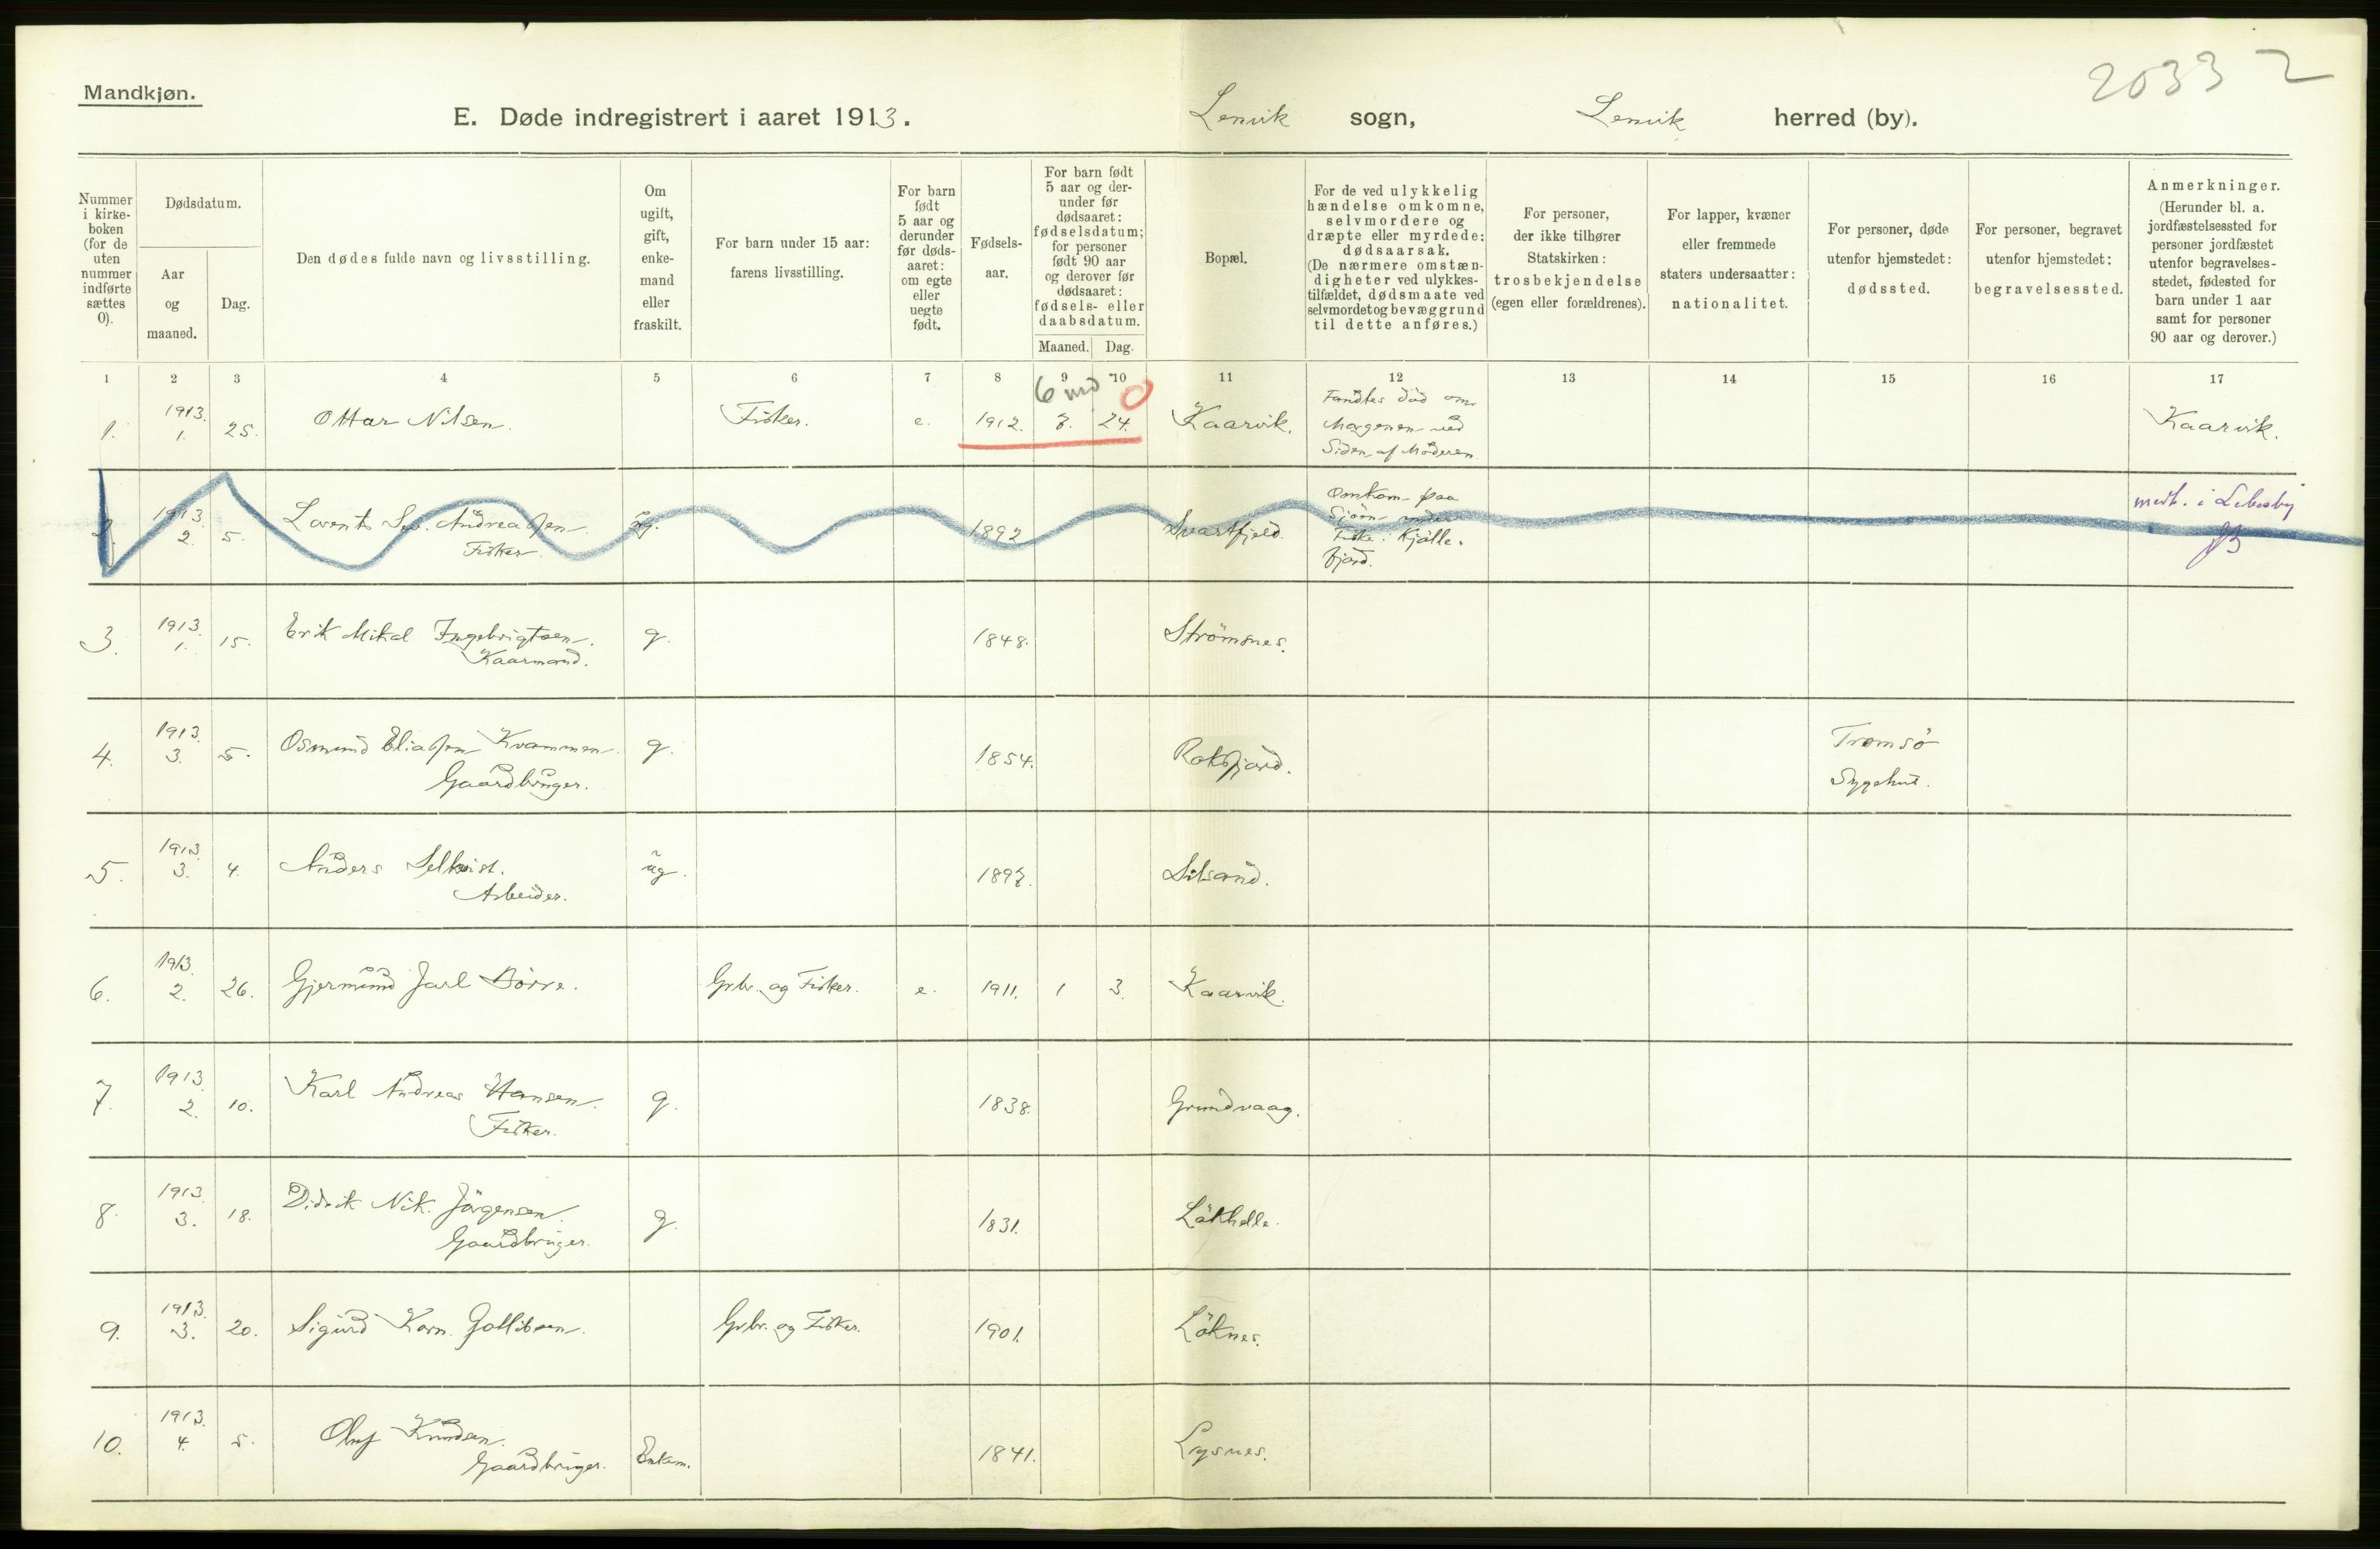 2033 2
Mandkjøn.
E. Døde indregistrert i aaret 1913. Lenvik sogn, Lenvik herred (by).
Nummer i kirke- boken (for de uten nummer indførte sættes 0).
Dødsdatum.
Aar og maaned.
Dag.
Den dødes fulde navn og livsstilling.
Om ugift, gift, enke- mand eller fraskilt.
For barn under 15 aar: farens livsstilling.
For barn født 5 aar og derunder før døds- aaret: om egte eller uegte født.
Fødsels- aar.
For barn født 5 aar og der- under før dødsaaret: fødselsdatum; for personer født 90 aar og derover før dødsaaret: fødsels- eller daabsdatum.
Maaned. Dag.
Bopæl.
For de ved ulykkelig hændelse omkomne, selvmordere og dræpte eller myrdede: dødsaarsak. (De nærmere omstæn- digheter ved ulykkes- tilfældet, dødsmaate ved selvmordet og bevæggrund til dette anføres.)
For personer, der ikke tilhører Statskirken: trosbekjendelse (egen eller forældrenes).
For lapper, kvæner eller fremmede staters undersaatter: nationalitet.
For personer, døde utenfor hjemstedet: dødssted.
For personer, begravet utenfor hjemstedet: begravelsessted.
Anmerkninger. (Herunder bl. a. jordfæstelsessted for personer jordfæstet utenfor begravelses- stedet, fødested for barn under 1 aar samt for personer 90 aar og derover.)
1 2 3 4 5 6 7 8 9 10 11 12 13 14 15 16 17
6 md 0
1. 1913. 1. 25. Ottar Nilsen. Fisker. e. 1912. 7. 24. Kaarvik. Fandtes död om Morgenen ved Siden af Moderen. Kaarvik.
2. 1913. 2. 5. Lorents Andreassen Fisker. ug. 1892 Svartfjeld. Omkom paa Sjöen under Fiske i Kjölle- fjord. medt. i Lebesby
3. 1913. 1. 15. Erik Mikal Ingebrigtsen. Kaarmand. g. 1848. Strömsnes.
4. 1913. 3. 5. Osmund Eliassen Kvammen. Gaardbruger. g. 1854. Roksfjord. Tromsö Sygehus.
5. 1913. 3. 4. Anders Selkvist. Arbeider. ug. 1897. Silsand.
6. 1913. 2. 26. Gjermund Jarl Börre. Grbr. og Fisker. e. 1911. 1 3. Kaarvik.
7. 1913. 2. 10. Karl Andreas Hansen. Fisker. g. 1838. Grundvaag.
8. 1913. 3. 18. Didrik Nik. Jörgensen. Gaardbruger. g. 1831. Läkhelle.
9. 1913. 3. 20. Sigurd Korn. Gabrielsen. Grbr. og Fisker. 1901. Löknes.
10. 1913. 4. 5. Oluf Knudsen. Gaardbruger. Enkem. 1841. Lysnes.